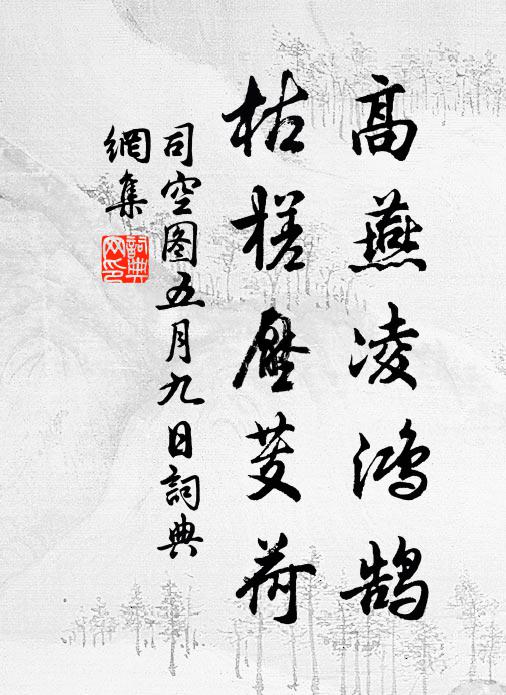 高燕凌鸿鹄
枯槎压芰荷
司空图五月九日詞典
網集
詞典
网印